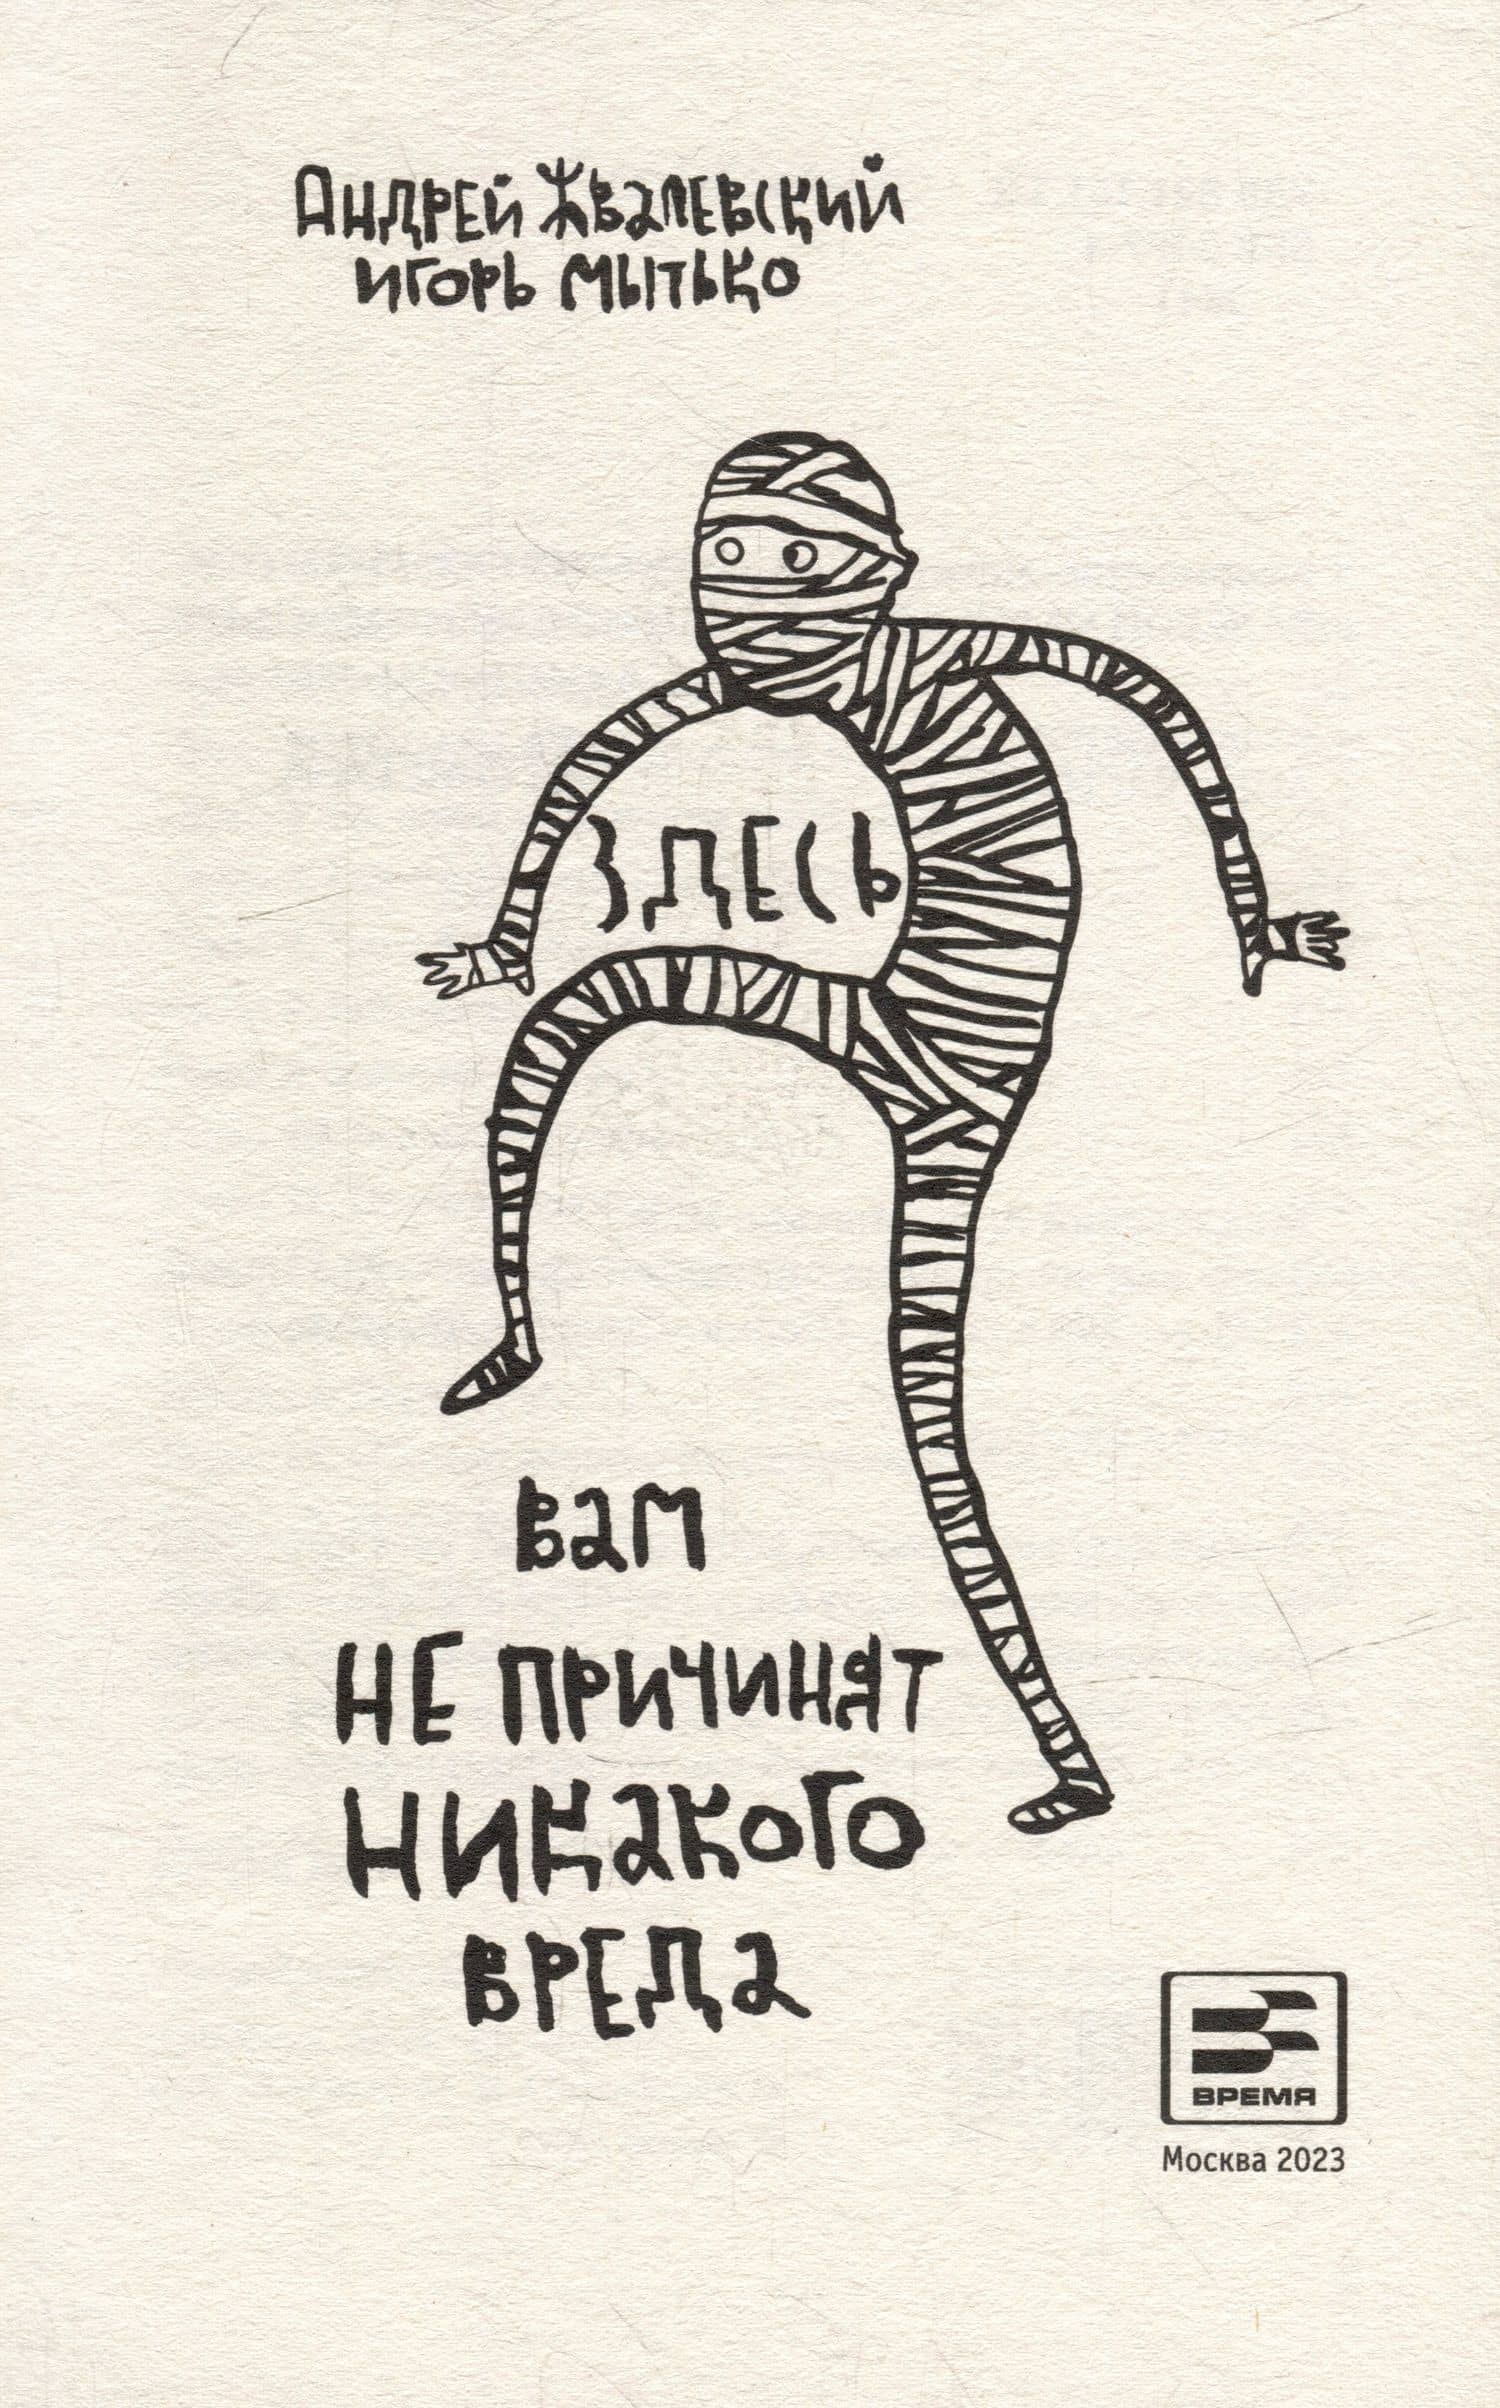 Андрей Жвалевский
Игорь Мытько
Здесь
вам
не причинят
никакого
вреда
ВРЕМЯ
Москва 2023